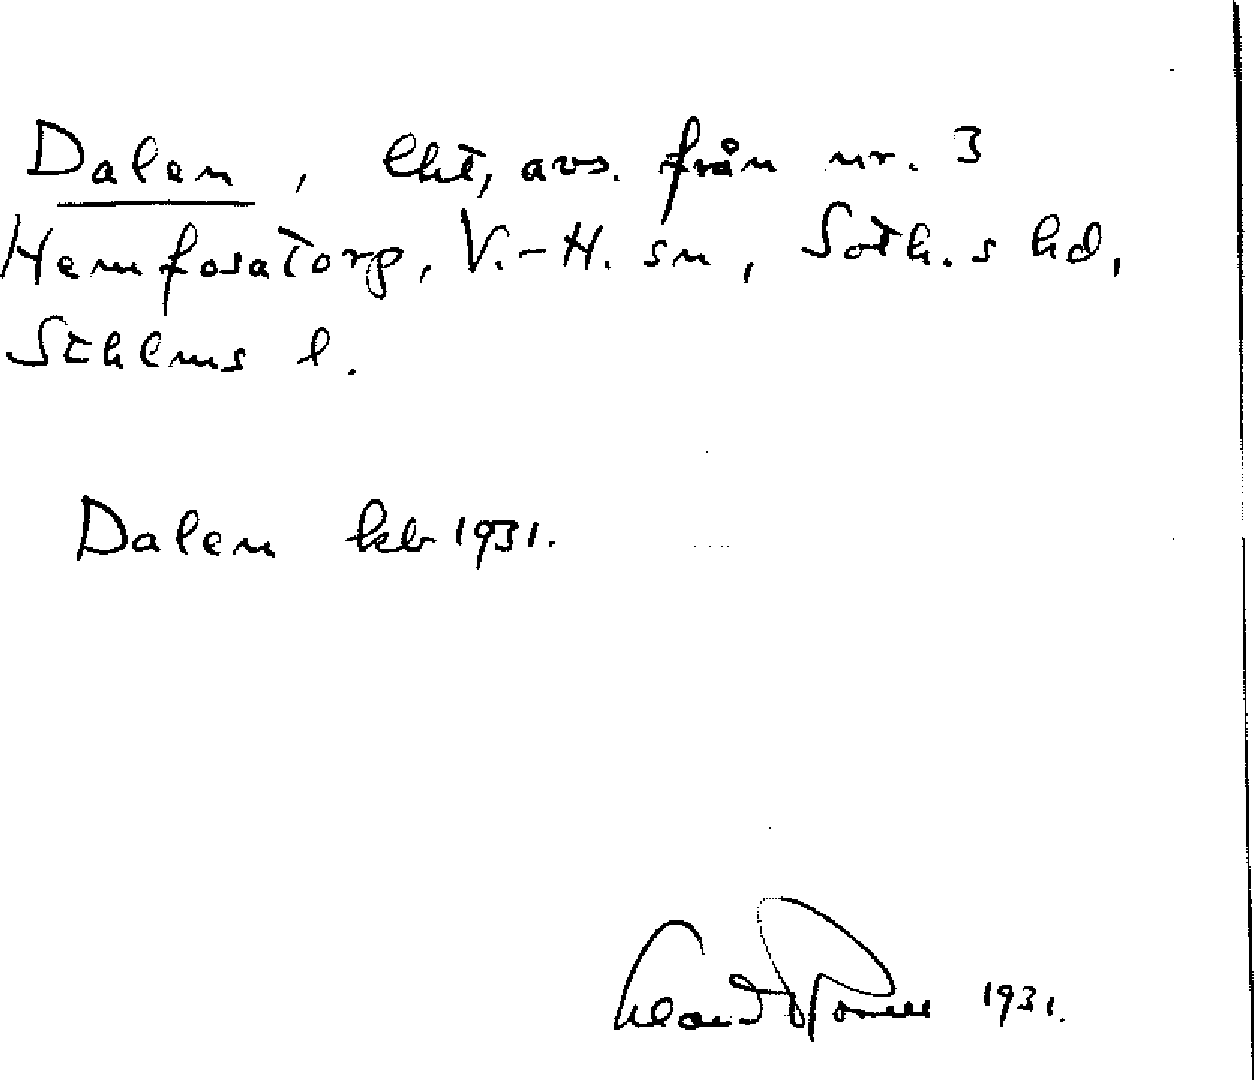 Dalen, lht, avs. från nr. 3
Hemfosatorp, V.-H. sn, Soth.s hd,
Sthlms l.
Dalen kb 1931.
1931.